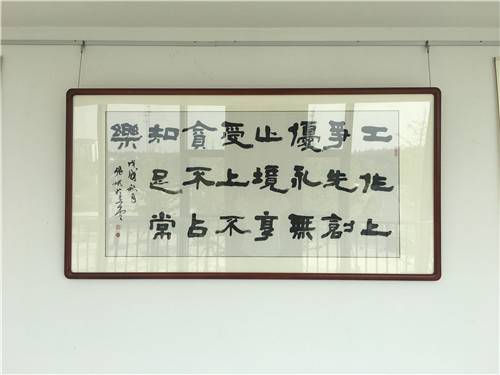 工作上
爭先創
優永無
止境享
受上不
貪不占
知足常
樂
戊戌秋月